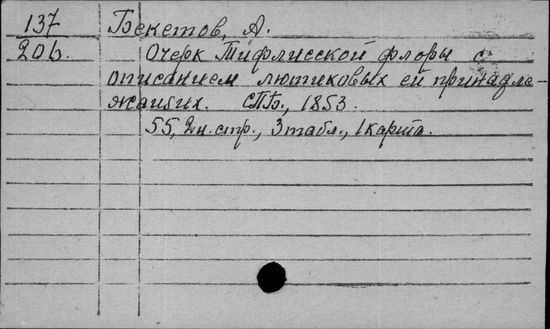 137 Бекетов, А.
206. Очерк Тифлисской флоры с
описанием лютиковых ей принадле-
жащих. СПб., 1853.
55, 2 н. стр., 3 табл., 1 карта.